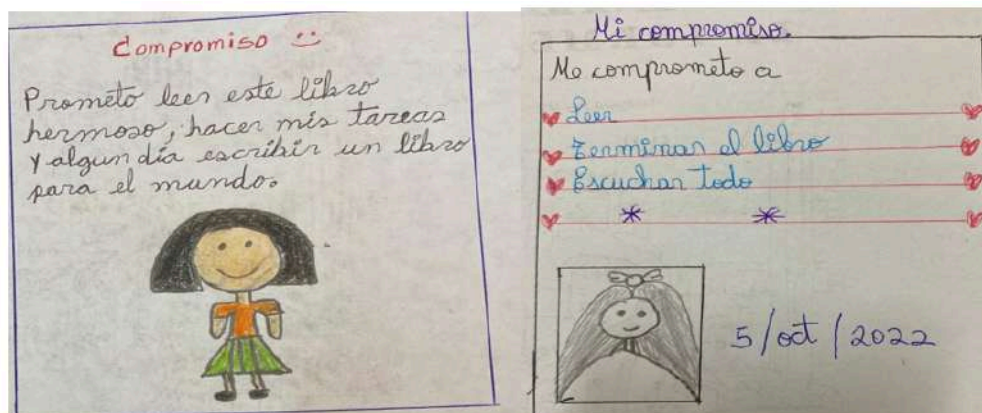 Compromiso
Prometo leer este libro
hermoso, hacer mis tareas
y algun día escribir un libro
para el mundo.
Mi compromiso.
Me comprometo a
Leer
Terminar el libro
Escuchar todo
5/oct/2022